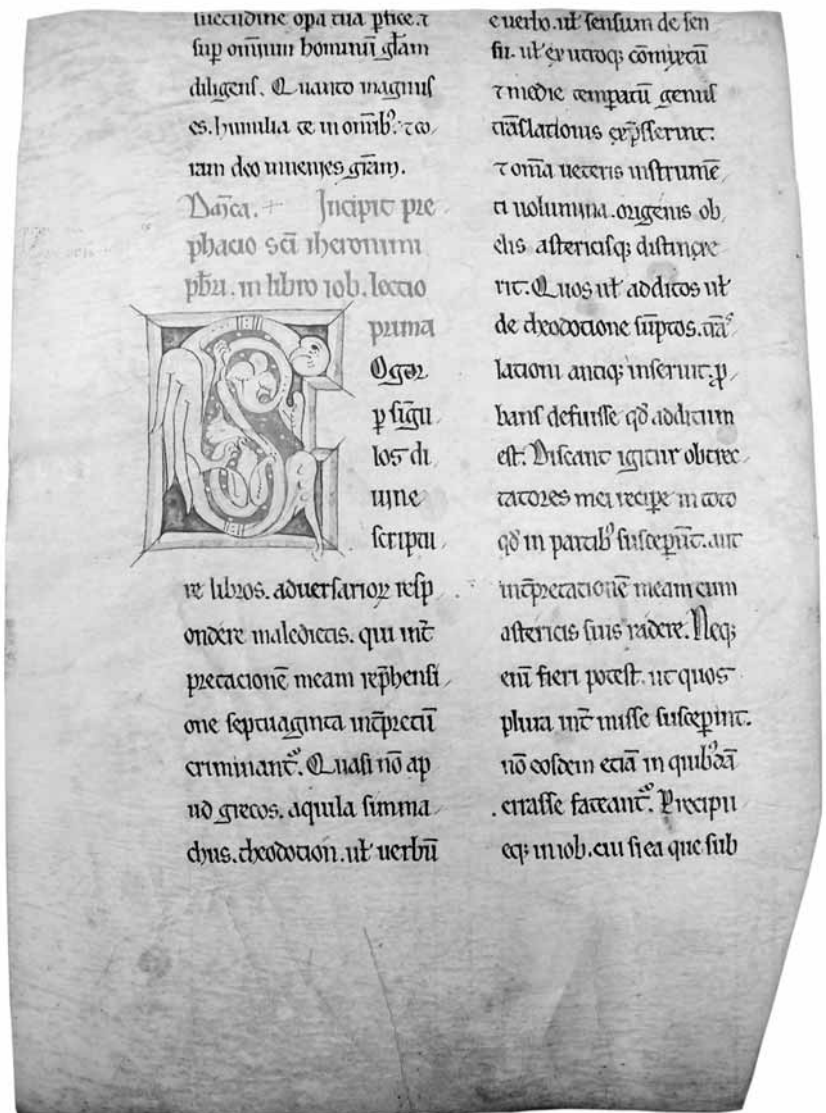 suetudine opa tua ꝑfice. ⁊
sup om̄ium hominū gl̄am
diligeris. Quanto magnus
es. humilia te in om̄ib᷒. ⁊ co
ram deo inuenies grām.
Incipit pre
phacio sc̄i iheronimi
pb̄ri. in libro iob. lectio
prima
Ogor
ꝑ sigu
los di
uine
scriptu
re libros. aduersarioꝝ resp
ondere maledictis. qui int̄
pretacionē meam rep̄hensi
one septuaginta int̄pretū
criminant᷒. Quasi nō ap
ud grecos. aquila simma
chus. theodotion. uł uerbū
e uerbo. uł sensum de sen
su. uł ex utroqꝫ cōmixtū
⁊ medie temꝑatū genus
trāslationis exp̄sserint:
⁊ om̄a ueteris instrumē
ti uolumina. origenis ob
elis astericisqꝫ distinxe
rit. Quos uł additos uł
de theodotione sūptos. trās
lationi antiqꝫ inseruit. ꝓ
bans defuisse qđ additum
est. Discant igitur obtrec
tatores mei recipe in toto
qđ in partib᷒ susceperūt. aut
int̄pretationē meam cum
astericis suis radere. Neqꝫ
enī fieri potest. ut quos
plura int̄ misse susceperint.
nō eosdem etiā in quib᷒dā
errasse fateant᷒. Precipu
eqꝫ in iob. cui si ea que sub